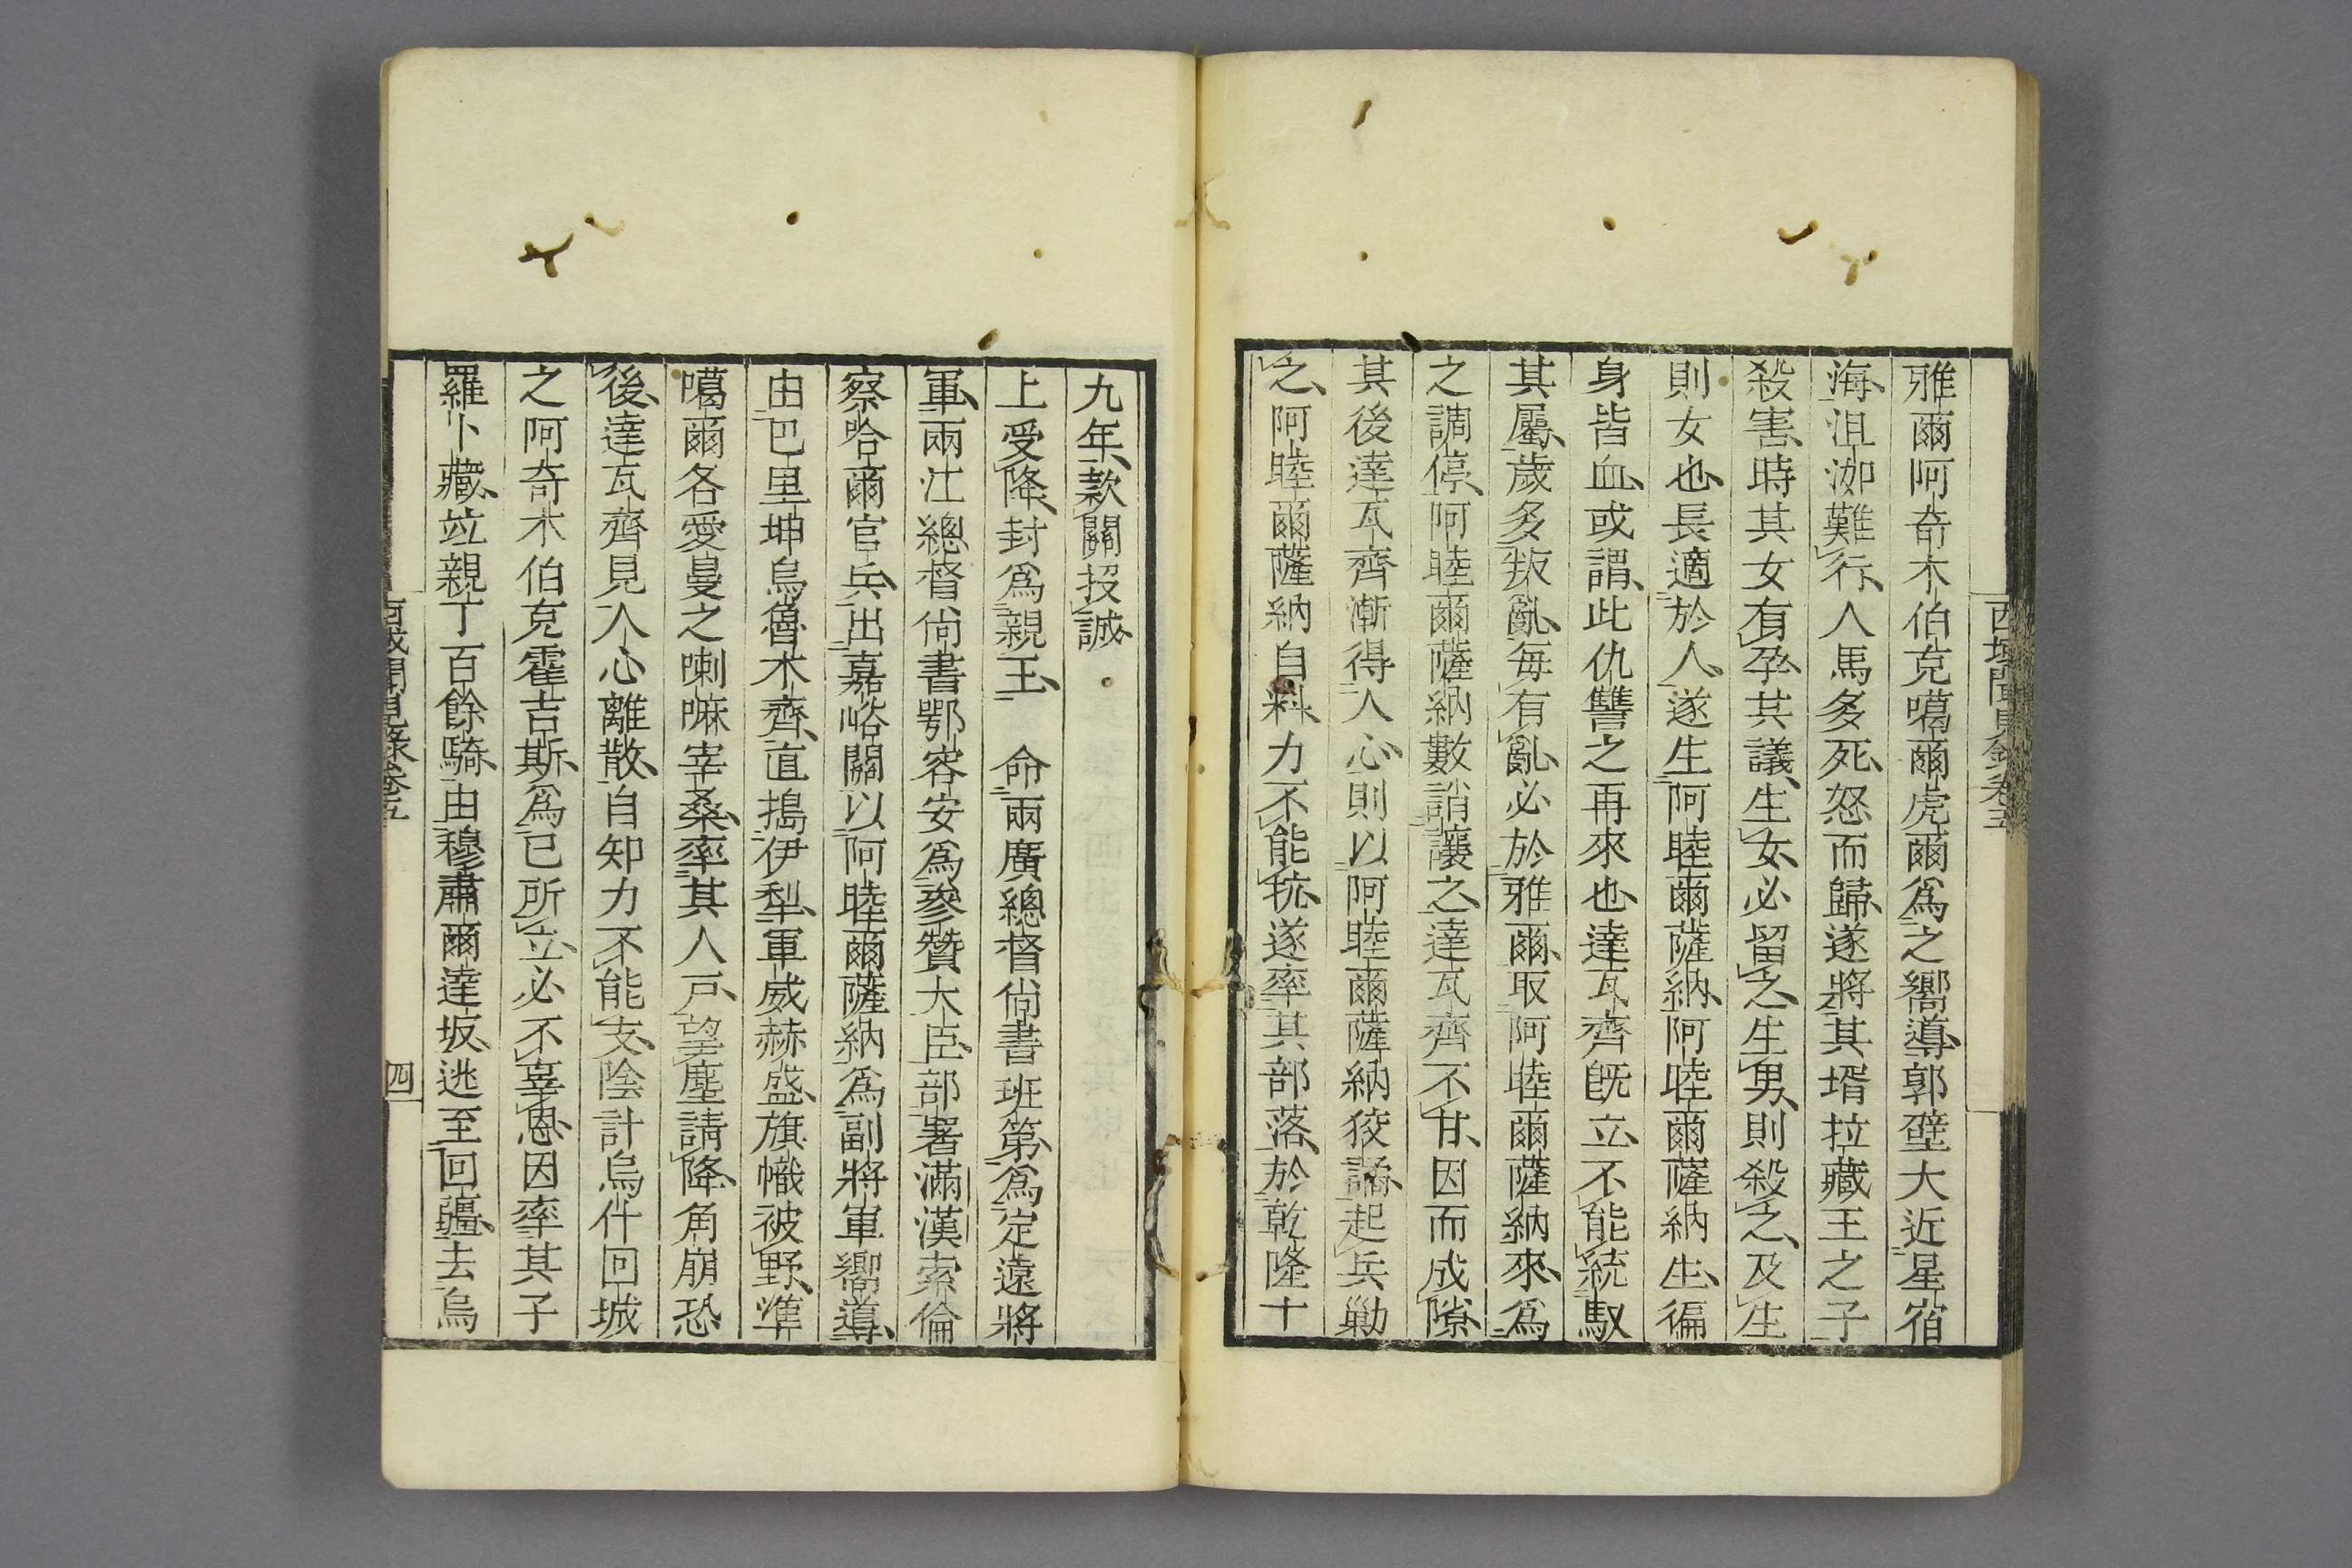 西域聞見錄卷五
雅爾阿奇木伯克噶爾虎爾爲之嚮導郭壁大近星宿
海沮洳難行人馬多死怒而歸遂將其壻拉藏王之子
殺害時其女有孕其議生女必留之生男則殺之及生
則女也長適於人遂生阿睦爾薩納阿睦爾薩納生徧
身皆血或謂此仇讐之再來也達瓦齊旣立不能統馭
其屬歲多叛亂每有亂必於雅爾取阿睦爾薩納來爲
之調停阿睦爾薩納數誚讓之達瓦齊不甘因而成隙
其後達瓦齊漸得人心則以阿睦爾薩納狡譎起兵勦
之阿睦爾薩納自料力不能抗遂率其部落於乾隆十
九年款關投誠
上受降封爲親王 命兩廣總督尙書班第爲定遠將
軍兩江總督尙書鄂容安爲參贊大臣部署滿漢索倫
察哈爾官兵出嘉峪關以阿睦爾薩納爲副將軍嚮導
由巴里坤烏魯木齊直搗伊犁軍威赫盛旗幟被野準
噶爾各愛曼之喇嘛宰桑率其人戶望塵請降角崩恐
後達瓦齊見人心離散自知力不能支陰計烏什回城
之阿奇木伯克霍吉斯爲已所立必不辜恩因率其子
羅卜藏竝親丁百餘騎由穆肅爾達坂逃至回疆去烏
西域聞見錄卷五
四